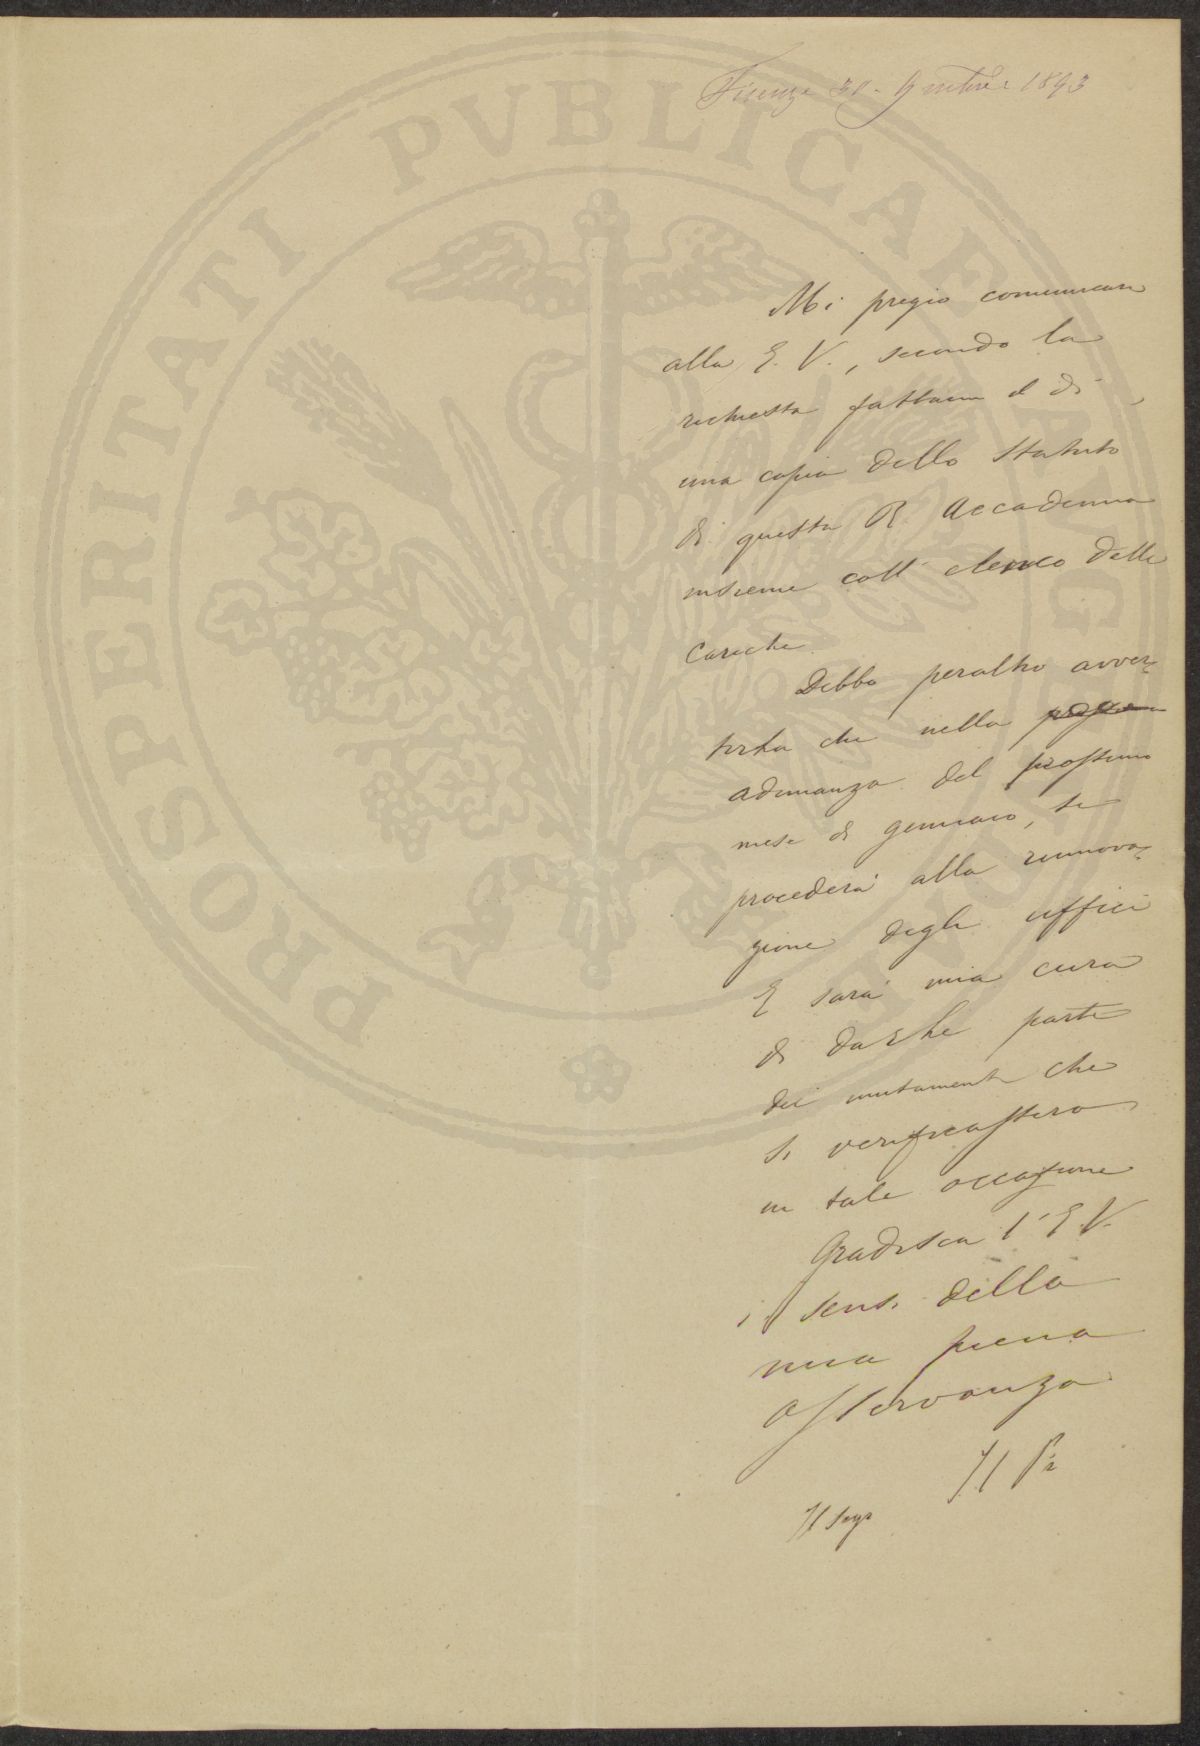 Firenze 30. 9mbre 1893
Mi pregio comunicare
alla E. V., secondo la
richiesta fattami il dì ,
una copia dello Statuto
di questa R. Accademia
insieme coll' elenco delle
Cariche
Debbo peraltro avver=
tirla che nella
adunanza del prossimo
mese di gennaio, si
procederà alla rinnova=
zione degli uffici
E sarà mia cura
di darLe parte
dei mutamenti che
si verificassero
in tale occasione
Gradisca l' E. V.
i sensi della
mia piena
osservanza
Il Pr
Il Segr
PROSPERITATI PVBLICAE AVGENDAE